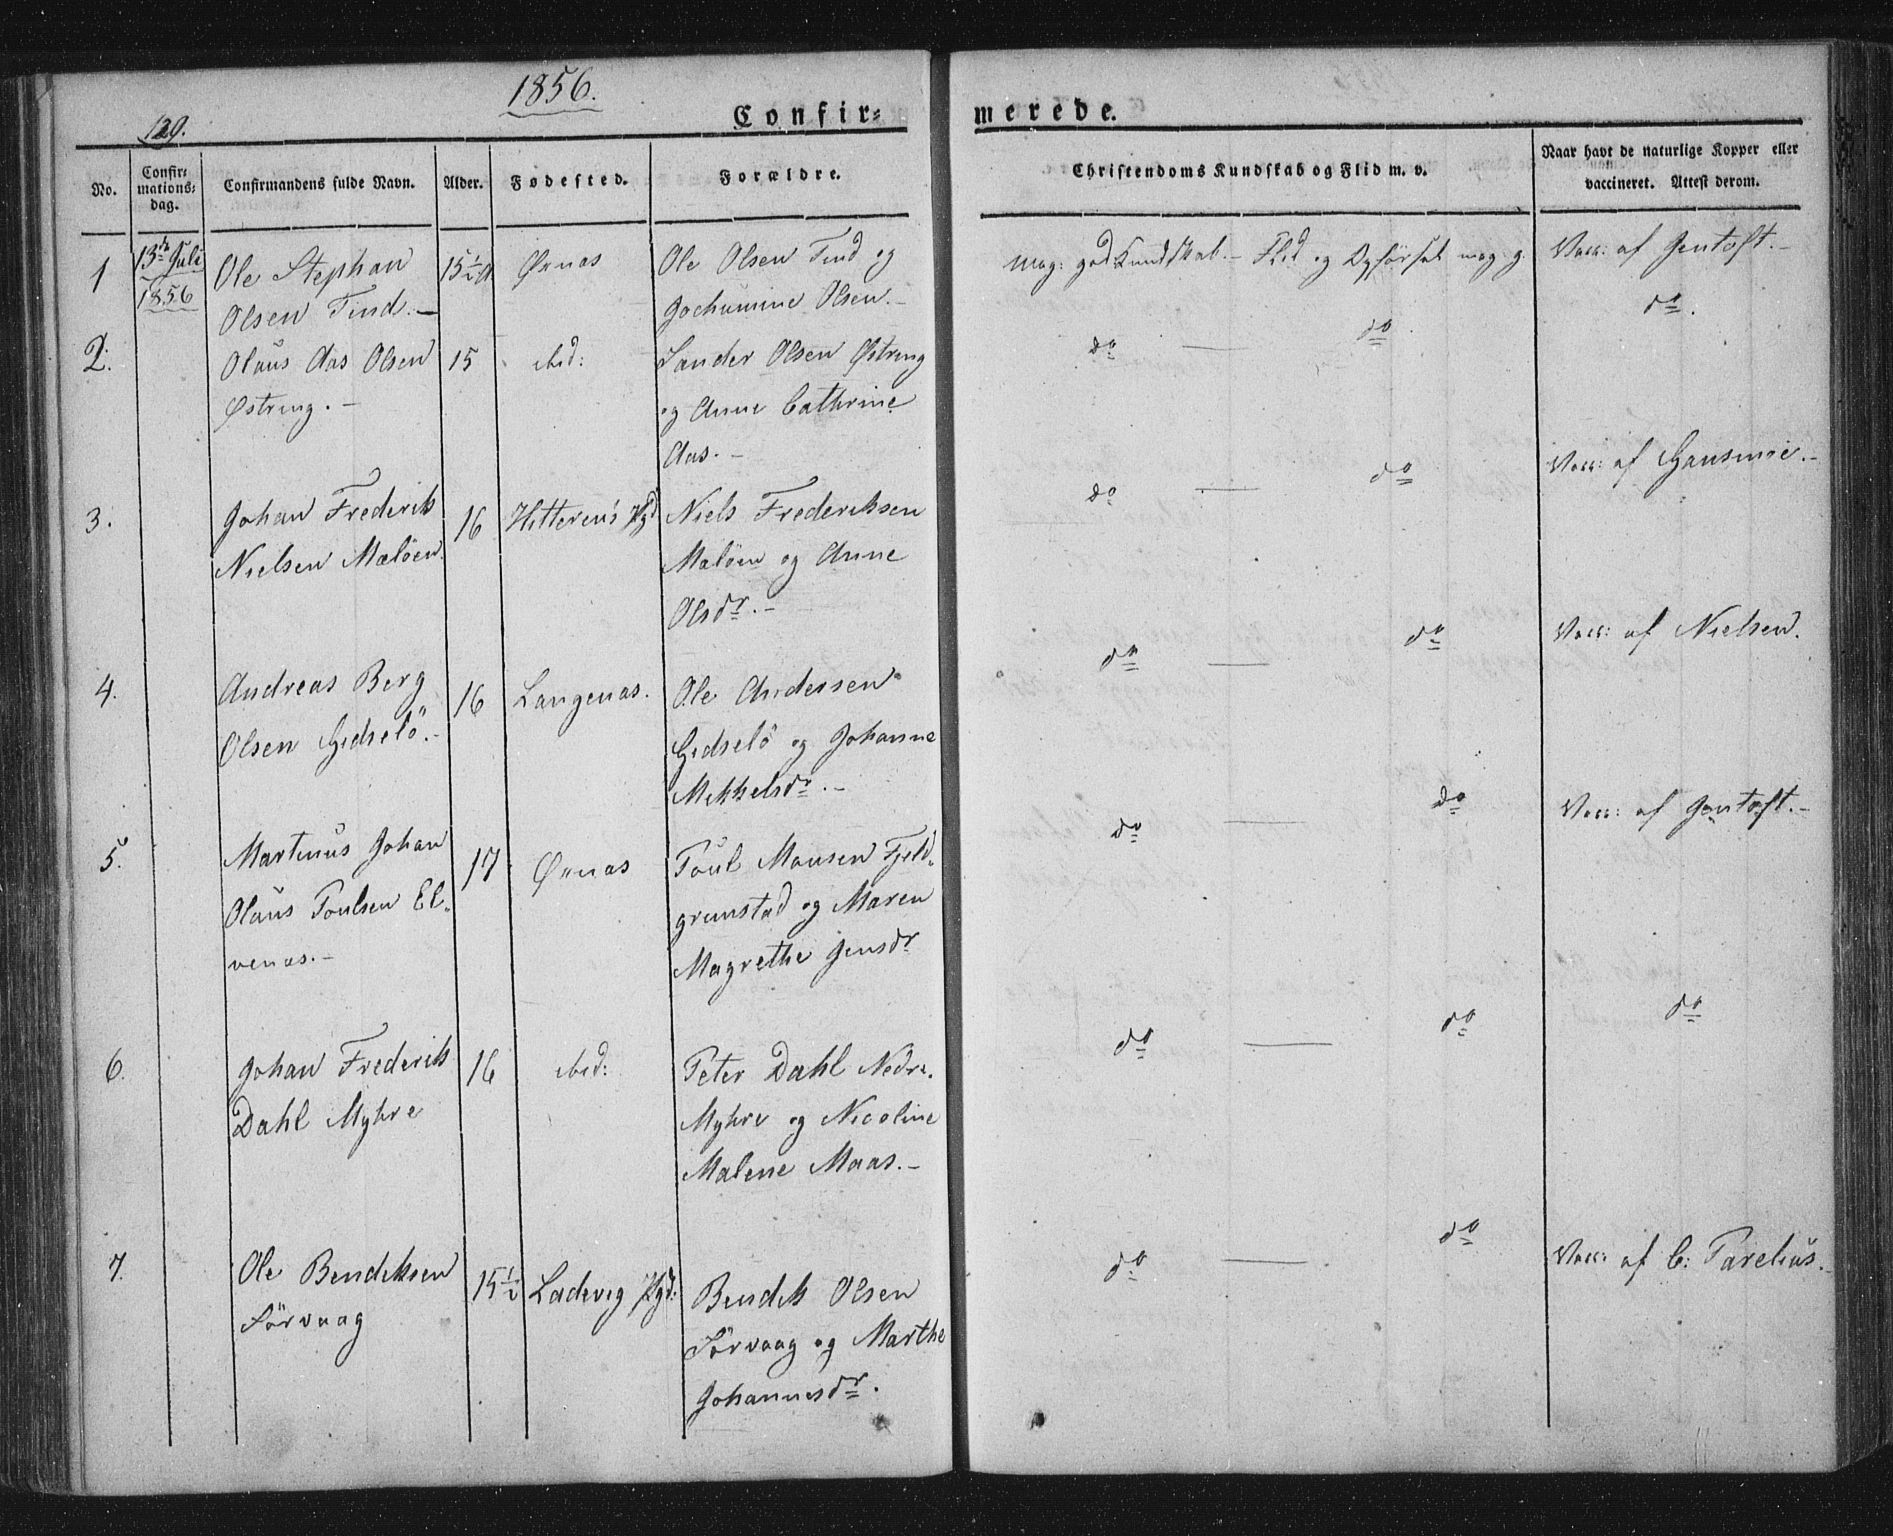 1856.
129.
Confir=
merede.
No.
Confir=
mations=
dag.
Confirmandens fulde Navn.
Alder.
Fødested.
Forældre.
Christendoms Kundskab og Flid m. v.
Naar havt de naturlige Kopper eller
vaccineret. Attest derom.
1
13de Juli
1856
Ole Stephan
Olsen Tind.—
15½
Ørnæs
Ole Olsen Tind og
Jochumine Olsen.—
Mag: god Kundskab.— Flid og Opførsel mag: g.
Vacc: af Jentoft.—
2.
Olaus Aas Olsen
Østring.—
15
ibid:
Sander Olsen Østring
og Anne Cathrine
Aas.—
do — do
do.
3.
Johan Frederik
Nielsen Meløen
16
Hitterens Pgd
Niels Frederiksen
Meløen og Anne
Olsdr.—
do — do
Vacc: af Hansmoe.—
4.
Andreas Berg
Olsen Gidselö.—
16
Langenæs.
Ole Andersen
Gidselö og Johanne
Mikkelsdr.—
do — do
Vacc: af Nielsen.
5.
Martinus Johan
Olaus Poulsen El=
venæs.—
17
Ørnæs
Poul Monsen Fjeld=
grimstad og Maren
Magrethe Jensdr
do — do
Vacc: af Jentoft.—
6.
Johan Frederik
Dahl Myhre
16
ibid:
Peter Dahl Nedre.
Myhre og Nicoline
Malene Maas.—
do — do
do
7.
Ole Bendiksen
Förvaag
15½
Ladevig Pgd:
Bendik Olsen
Sörvaag og Marthe
Johannesdr.
do — do
Vacc: af C: Parelius.